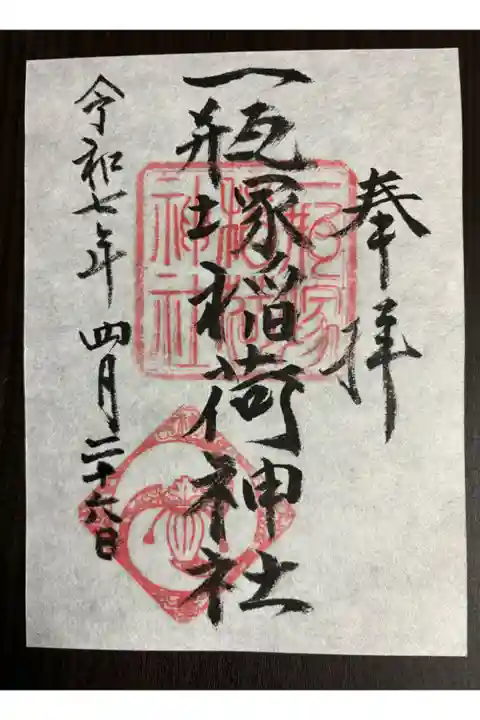 奉拝
一瓶塚稲荷神社
令和七年 四月二十六日
一瓶塚
稲荷
神社